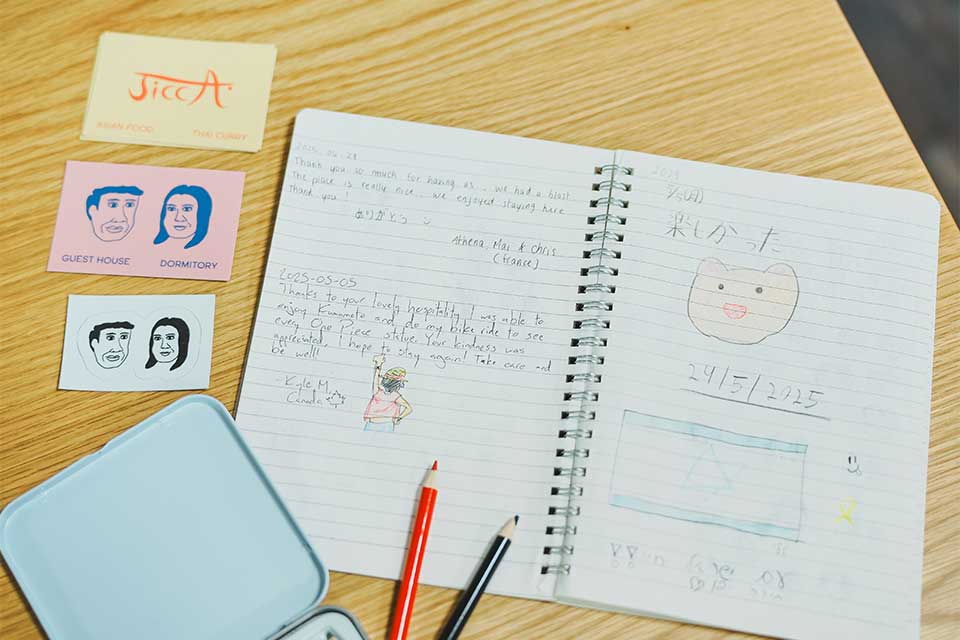 JiccA.
ASIAN FOOD
THAI CURRY
GUEST HOUSE
DORMITORY
2025.04.28
Thank you so much for having us .. we had a blast
The place is really nice... we enjoyed staying here
Thank you !
ありがとう
Athena, Mai & Chris
(France)
2025-05-05
Thanks to your lovely hospitality I was able to
enjoy Kumamoto and do my bike ride to see
every One Piece statue. Your kindness was
appreciated. I hope to stay again! Take care and
be well!
-Kyle M.
Canada
楽しかった
24/5/2025